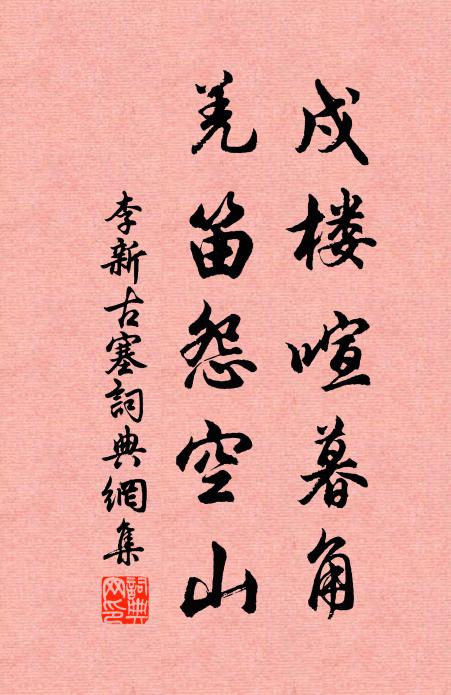 戍楼喧暮角
羌笛怨空山
李新古塞詞典網集
詞典网印